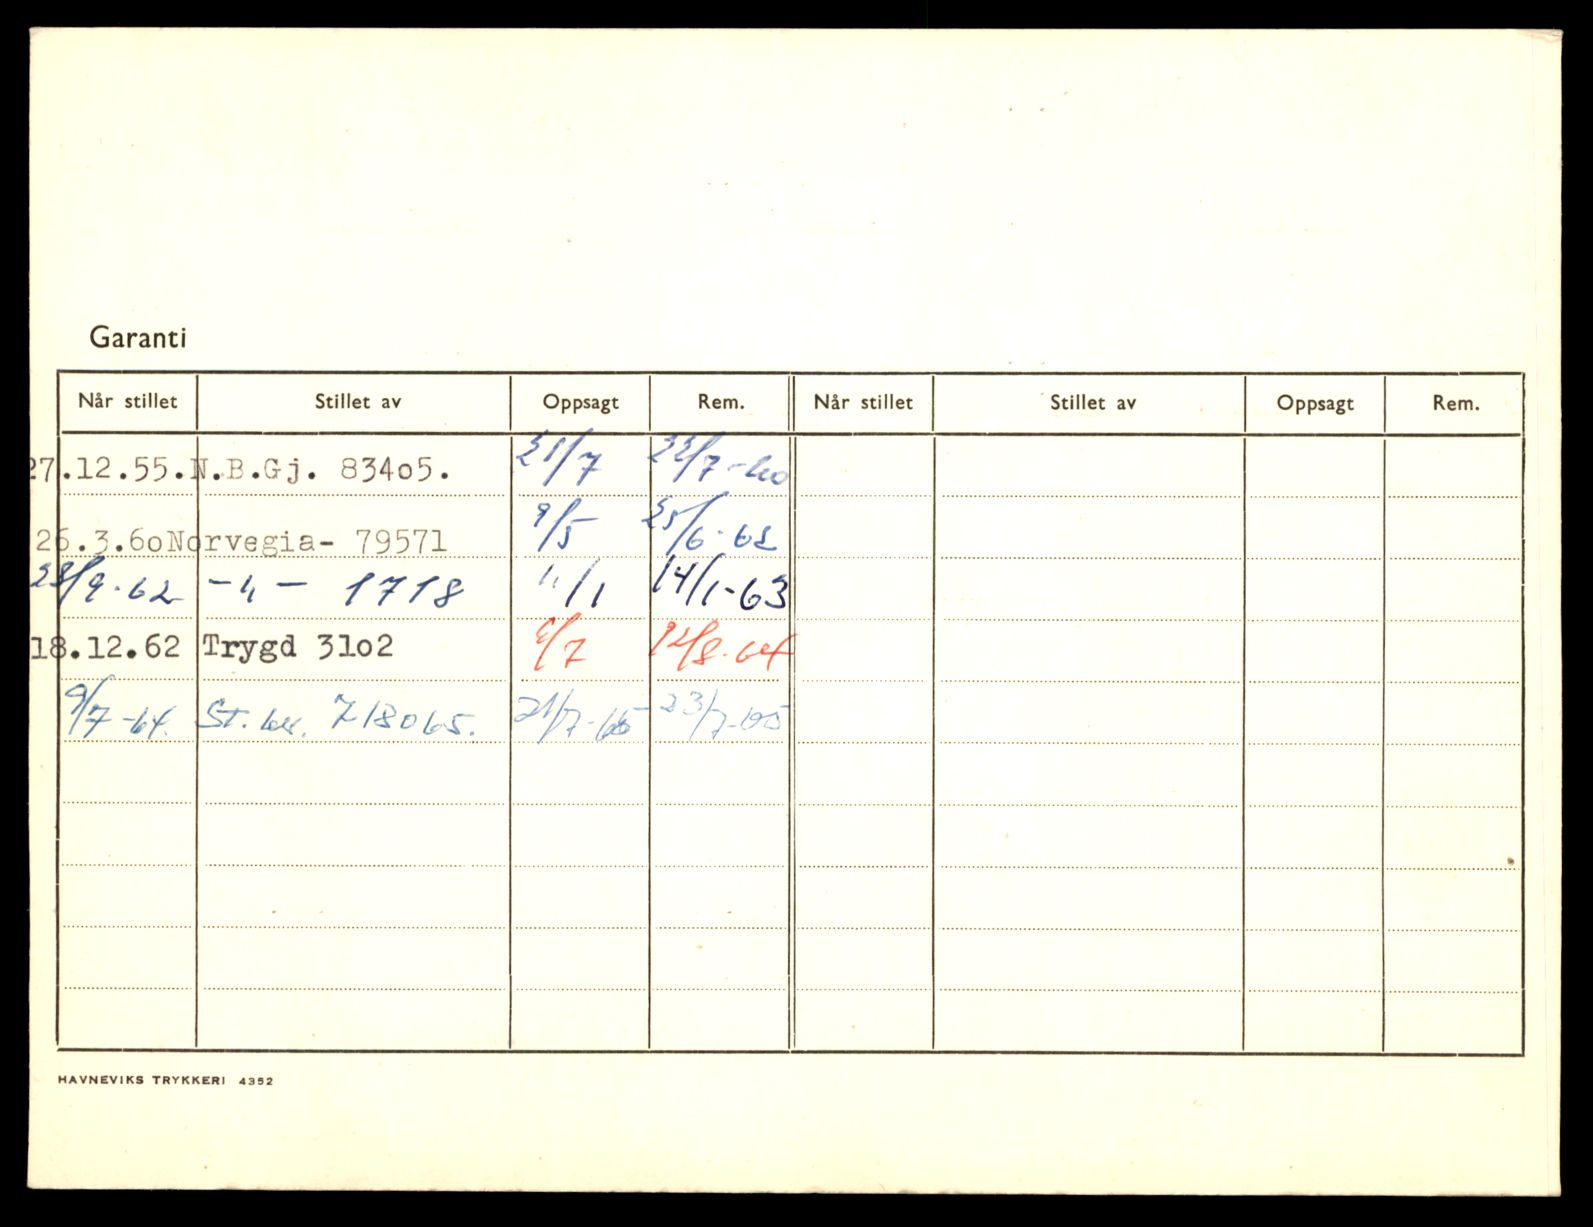 Garanti
Når stillet Stillet av Oppsagt Rem. Når stillet Stillet av Oppsagt Rem.
27.12.55. N.B.Gj. 834o5. 21/7 22/7-60
26.3.6o Norvegia- 79571 9/5 25/6-62
28/9-62 -"- 1718 11/1 14/1-63
18.12.62 Trygd 31o2 8/7 12/8-64
9/7-64. St. 718065. 21/7-65 23/7-65
HAVNEVIKS TRYKKERI 4352